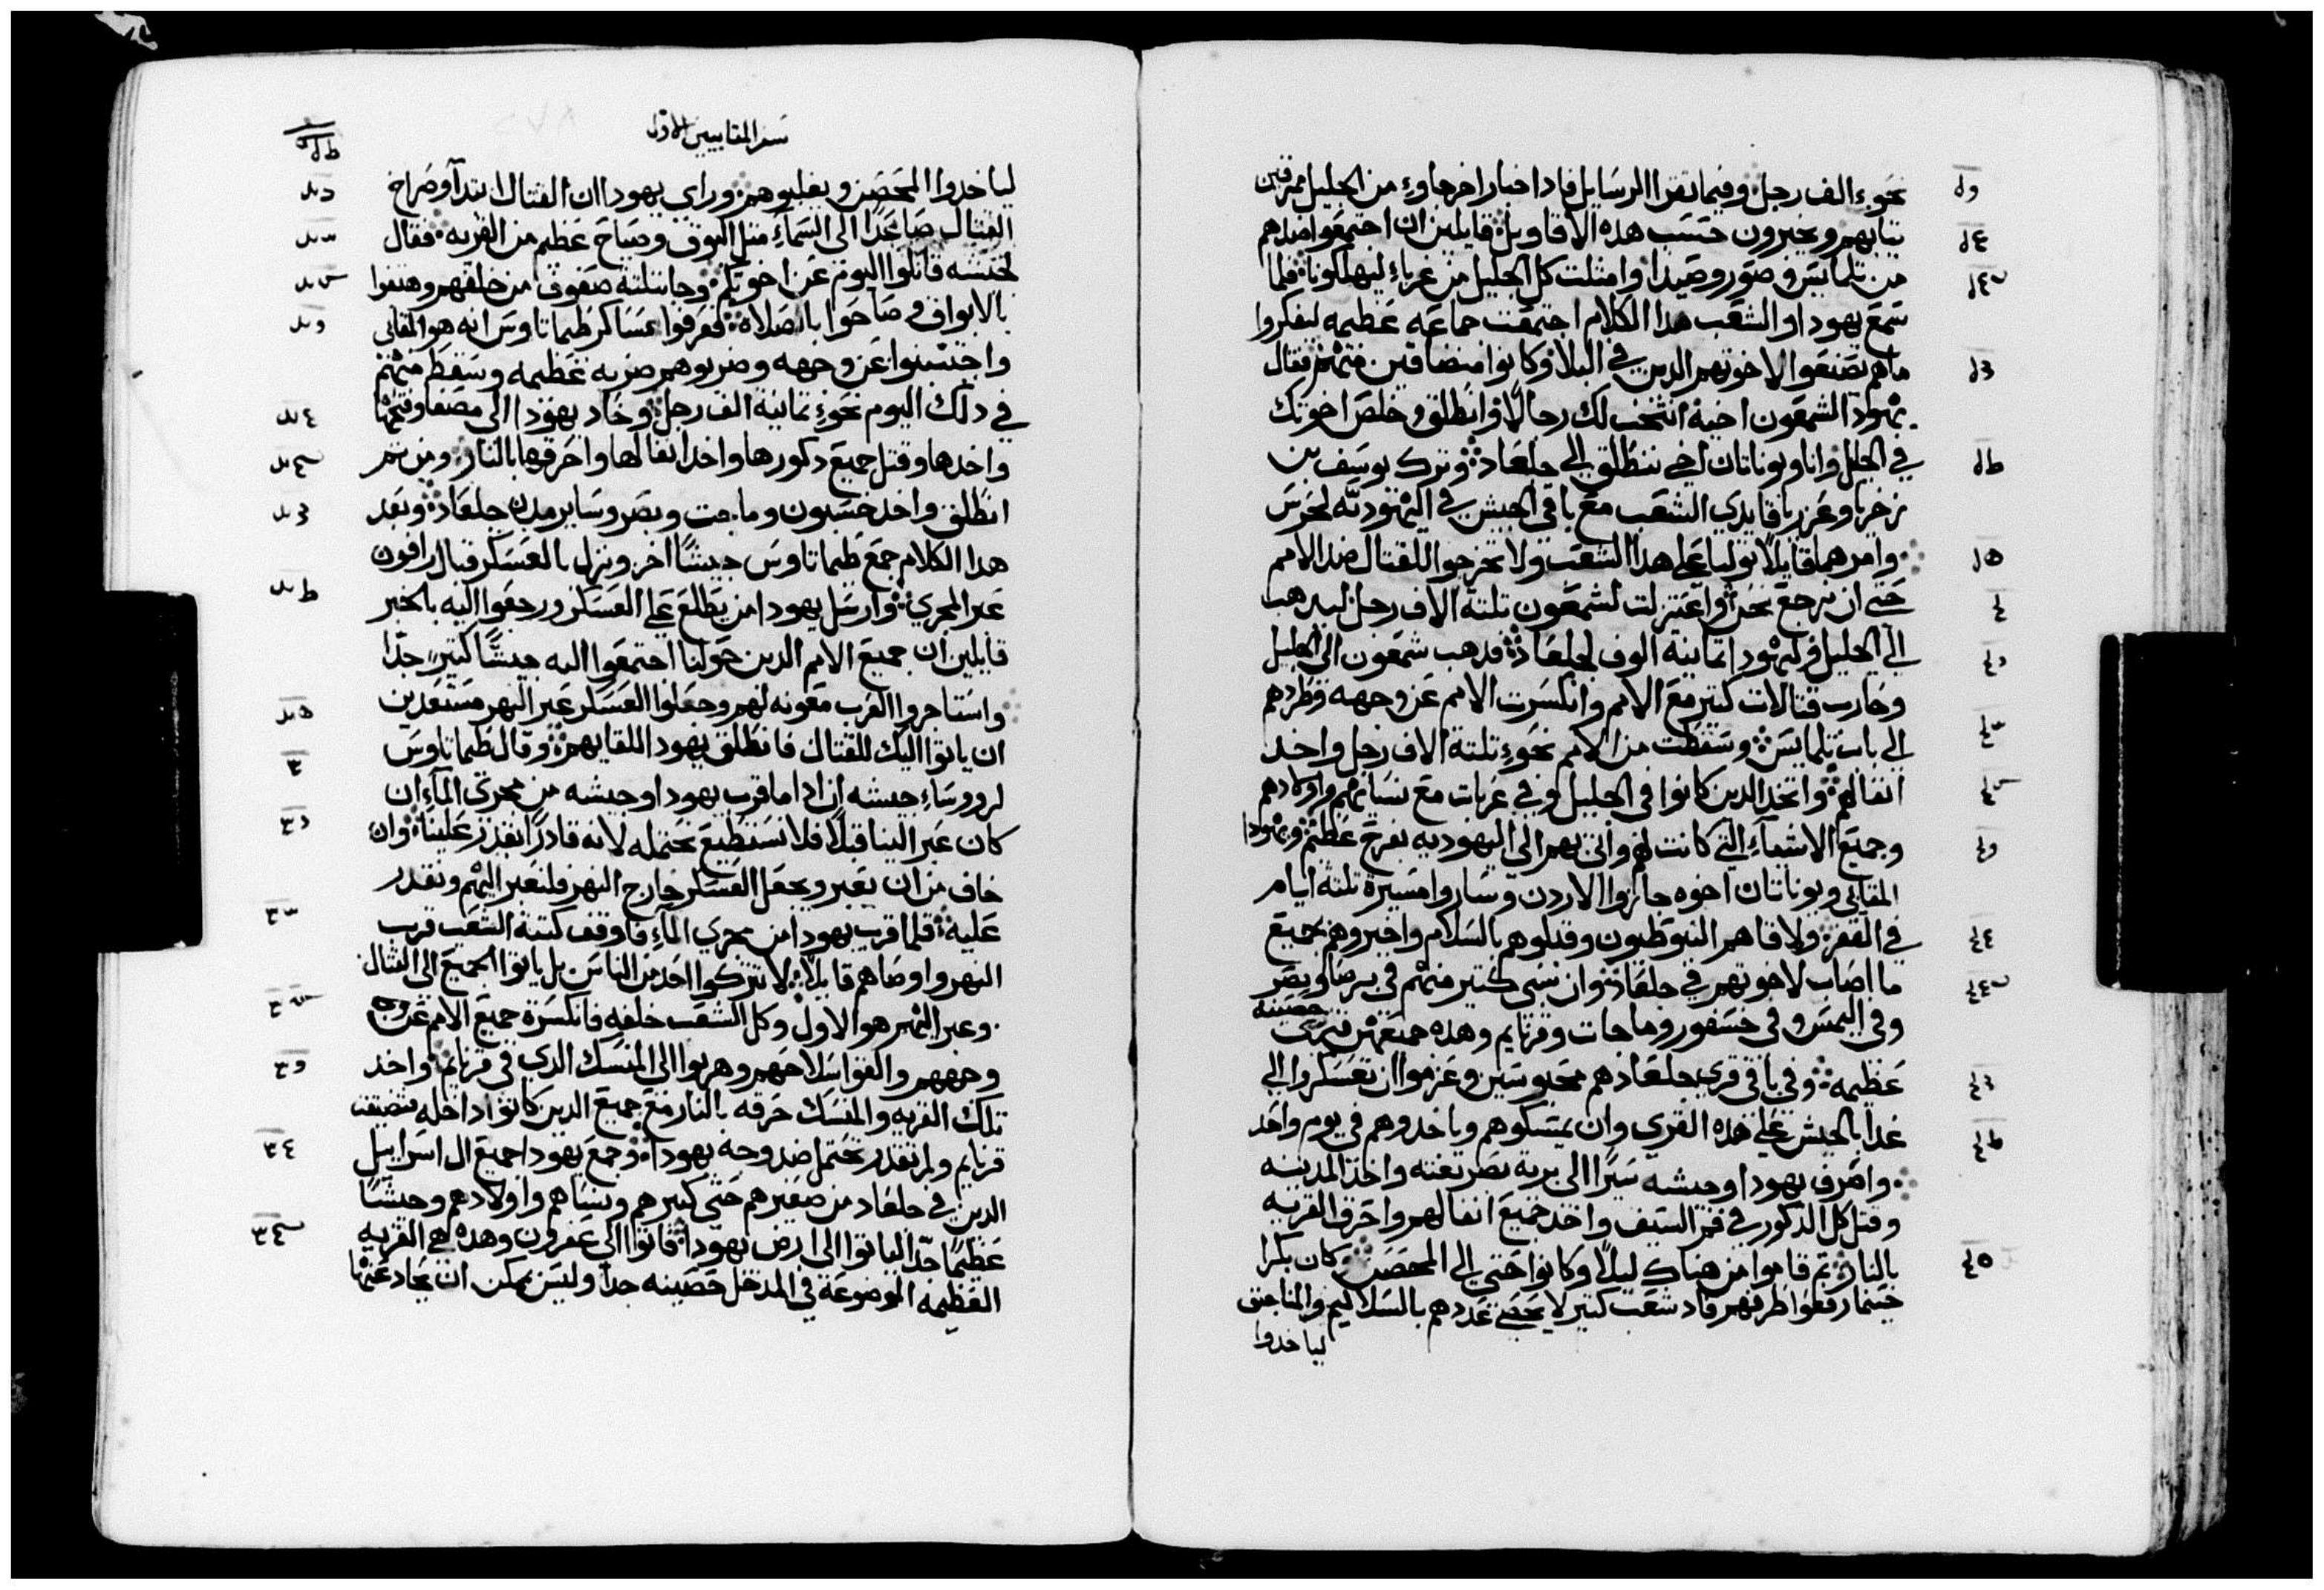 نحوء الف رجل وفيما تقرا الرسايل فادا اخبار اخر جاوء من الجليل ممزقين
تيابهم ويخبرون حسب هده الاقاويل قايلين ان اجتمعوا ضدهم
من تلمايس وصور وصيدا وامتلت كل الجليل من غرباء ليهلكونا فلما
سمع يهودا والشعب هدا الكلام اجتمعت جماعه عظيمه ليفكروا
ماهم يصنعوا لاخوتهم الدين في البلاء وكانوا متضاقين منهم فقال
يهودا لشمعون اخيه انتخب لك رجالا وانطلق وخلص اخوتك
في الجليل وانا ويوناتان اخي ننطلق الي جلعاد وترك يوسف بن
زخريا وعزريا قايدي الشعب مع باقي الجيش في اليهوديه لحرس
وامرهما قايلا توليا علي هدا الشعب ولا تخرجوا للقتال ضد الامم
حتي ان نرجع نحن واعتزلت لشمعون تلتة الاف رجل ليدهب
الي الجليل وليهودا تمانية الوف لجلعاد فدهب شمعون الي الجليل
وحارب قتالات كتير مع الامم وانكسرت الامم عن وجهه وطردهم
الي باب تلمايس وسقطت من الامم نحوء تلتة الاف رجل واخد
انفالهم واتخد الدين كانوا في الجليل وفي عربات مع نسايهم واولادهم
وجميع الاشياء التي كانت لهم واتي بهم الي اليهوديه بفرح عظيم ويهودا
المقابي ويوناتان اخوه جازوا الاردن وساروا مسيرة تلتة ايام
في القفر ولاقاهم النبوطيون وقبلوهم بالسلام واخبروهم بجميع
ما اصاب لاخوتهم في جلعاد وان سبي كتير منهم في برصا وبصر
وفي اليمس وفي خسفور وماجات وقرنايم وهده جميعهن قري حصينه
عظيمه وفي باقي قري جلعاد هم محبوسين وعزموا ان تعسكروا الي
غدا بالجيش علي هده القري وان يمسكوهم وياخدوهم في يوم واحد
وانحرف يهودا وجيشه سيرا الي برية بصر بغته واخد المدينه
وقتل كل الدكور في فم السيف واخد جميع انفالهم واحرق القريه
بالنار تم قاموا من هناك ليلا وكانوا حتي الي المحصن كان بكرا
حينما رفعوا طرفهم فاد شعب كتير لا يحصي عددهم بالسلاليم والمناجنق
لياخدوا
سفر المقابيين الاول
لياخدوا المحصن ويغلبوهم وراي يهودا ان القتال ابتدا وصراخ
القتال صاعدا الي السماء متل البوق وصياح عظيم من القريه فقال
لجيشه قاتلوا اليوم عن اخوتكم وجا بتلته صفوف من خلفهم وهتفوا
بالابواق وصاحوا بالصلاه فعرفوا عساكر طيماتاوس انه هو المقابي
واجتنبوا عن وجهه وضربوهم ضربه عظيمه وسقط منهم
في دلك اليوم نحوء تمانية الف رجل وحاد يهودا الي مصفا وفتحها
واخدها وقتل جميع دكورها واخد انفالها واحرقها بالنار ومن تم
انطلق واخد خسبون وماجت وبصر وساير مدن جلعاد وبعد
هدا الكلام جمع طيماتاوس جيشا اخر ونزل بالعسكر قبال رافون
عبر المجري وارسل يهودا من يطلع علي العسكر ورجعوا اليه بالخبر
قايلين ان جميع الامم الدين حولنا اجتمعوا اليه جيشا كتير جدا
واستاجروا العرب معونه لهم وجعلوا العسكر عبر النهر مستعدين
ان ياتوا اليك للقتال فانطلق يهودا للقايهم وقال طيماتاوس
لرووساء جيشه ان ادا ما قرب يهودا وجيشه من مجري الماء ان
كان عبر الينا قبلا فلا نستطيع نحتمله لانه قادرا يقدر علينا وان
خاف من ان يعبر ويجعل العسكر خارج النهر فلنعبر اليهم ونقدر
عليه فلما قرب يهودا من مجري الماء فاوقف كتبة الشعب قرب
النهر واوصاهم قايلا لا تتركوا احد من الناس بل ياتوا الجميع الي القتال
وعبر اليهم هو الاول وكل الشعب خلفه فانكسرة جميع الامم عن وجه
وجههم والقوا سلاحهم وهربوا الي المنسك الدي في قرنايم واخد
تلك القريه والمنسك حرقه بالنار مع جميع الدين كانوا داخله فتضيقت
قرنايم ولم تقدر تحتمل ضد وجه يهودا وجمع يهودا جميع ال اسراييل
الدين في جلعاد من صغيرهم حتي كبيرهم ونساهم واولادهم وجيشا
عظيما جدا لياتوا الي ارض يهودا فاتوا الي عفرون وهده هي القريه
العظيمه الموضوعة في المدخل حصينه جدا وليس يمكن ان يحاد عنها